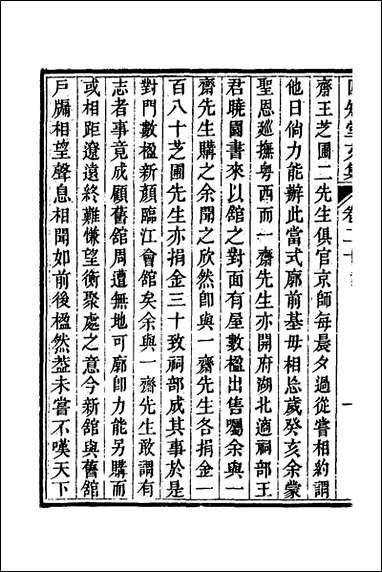 四知堂文集 卷二十
齋王芝圃二先生俱官京師每晨夕過從嘗相約謂
他日倘力能辦此當式廓前基毋相忘歲癸亥余蒙
聖恩廵撫粤西而一齋先生亦開府湖北適祠部王
君曉園書來以舘之對面有屋數楹出售囑余與一
齋先生購之余聞之欣然卽與一齋先生各捐金一
百八十芝圃先生亦捐金三十致祠部成其事於是
對門數楹新顔臨江會舘矣余與一齋先生敢謂有
志者事竟成顧舊舘周遭無地可廓卽力能另購而
或相距遼遠終難慊望衡聚處之意今新舘與舊舘
戸牖相望聲息相聞如前後楹然葢未嘗不嘆天下